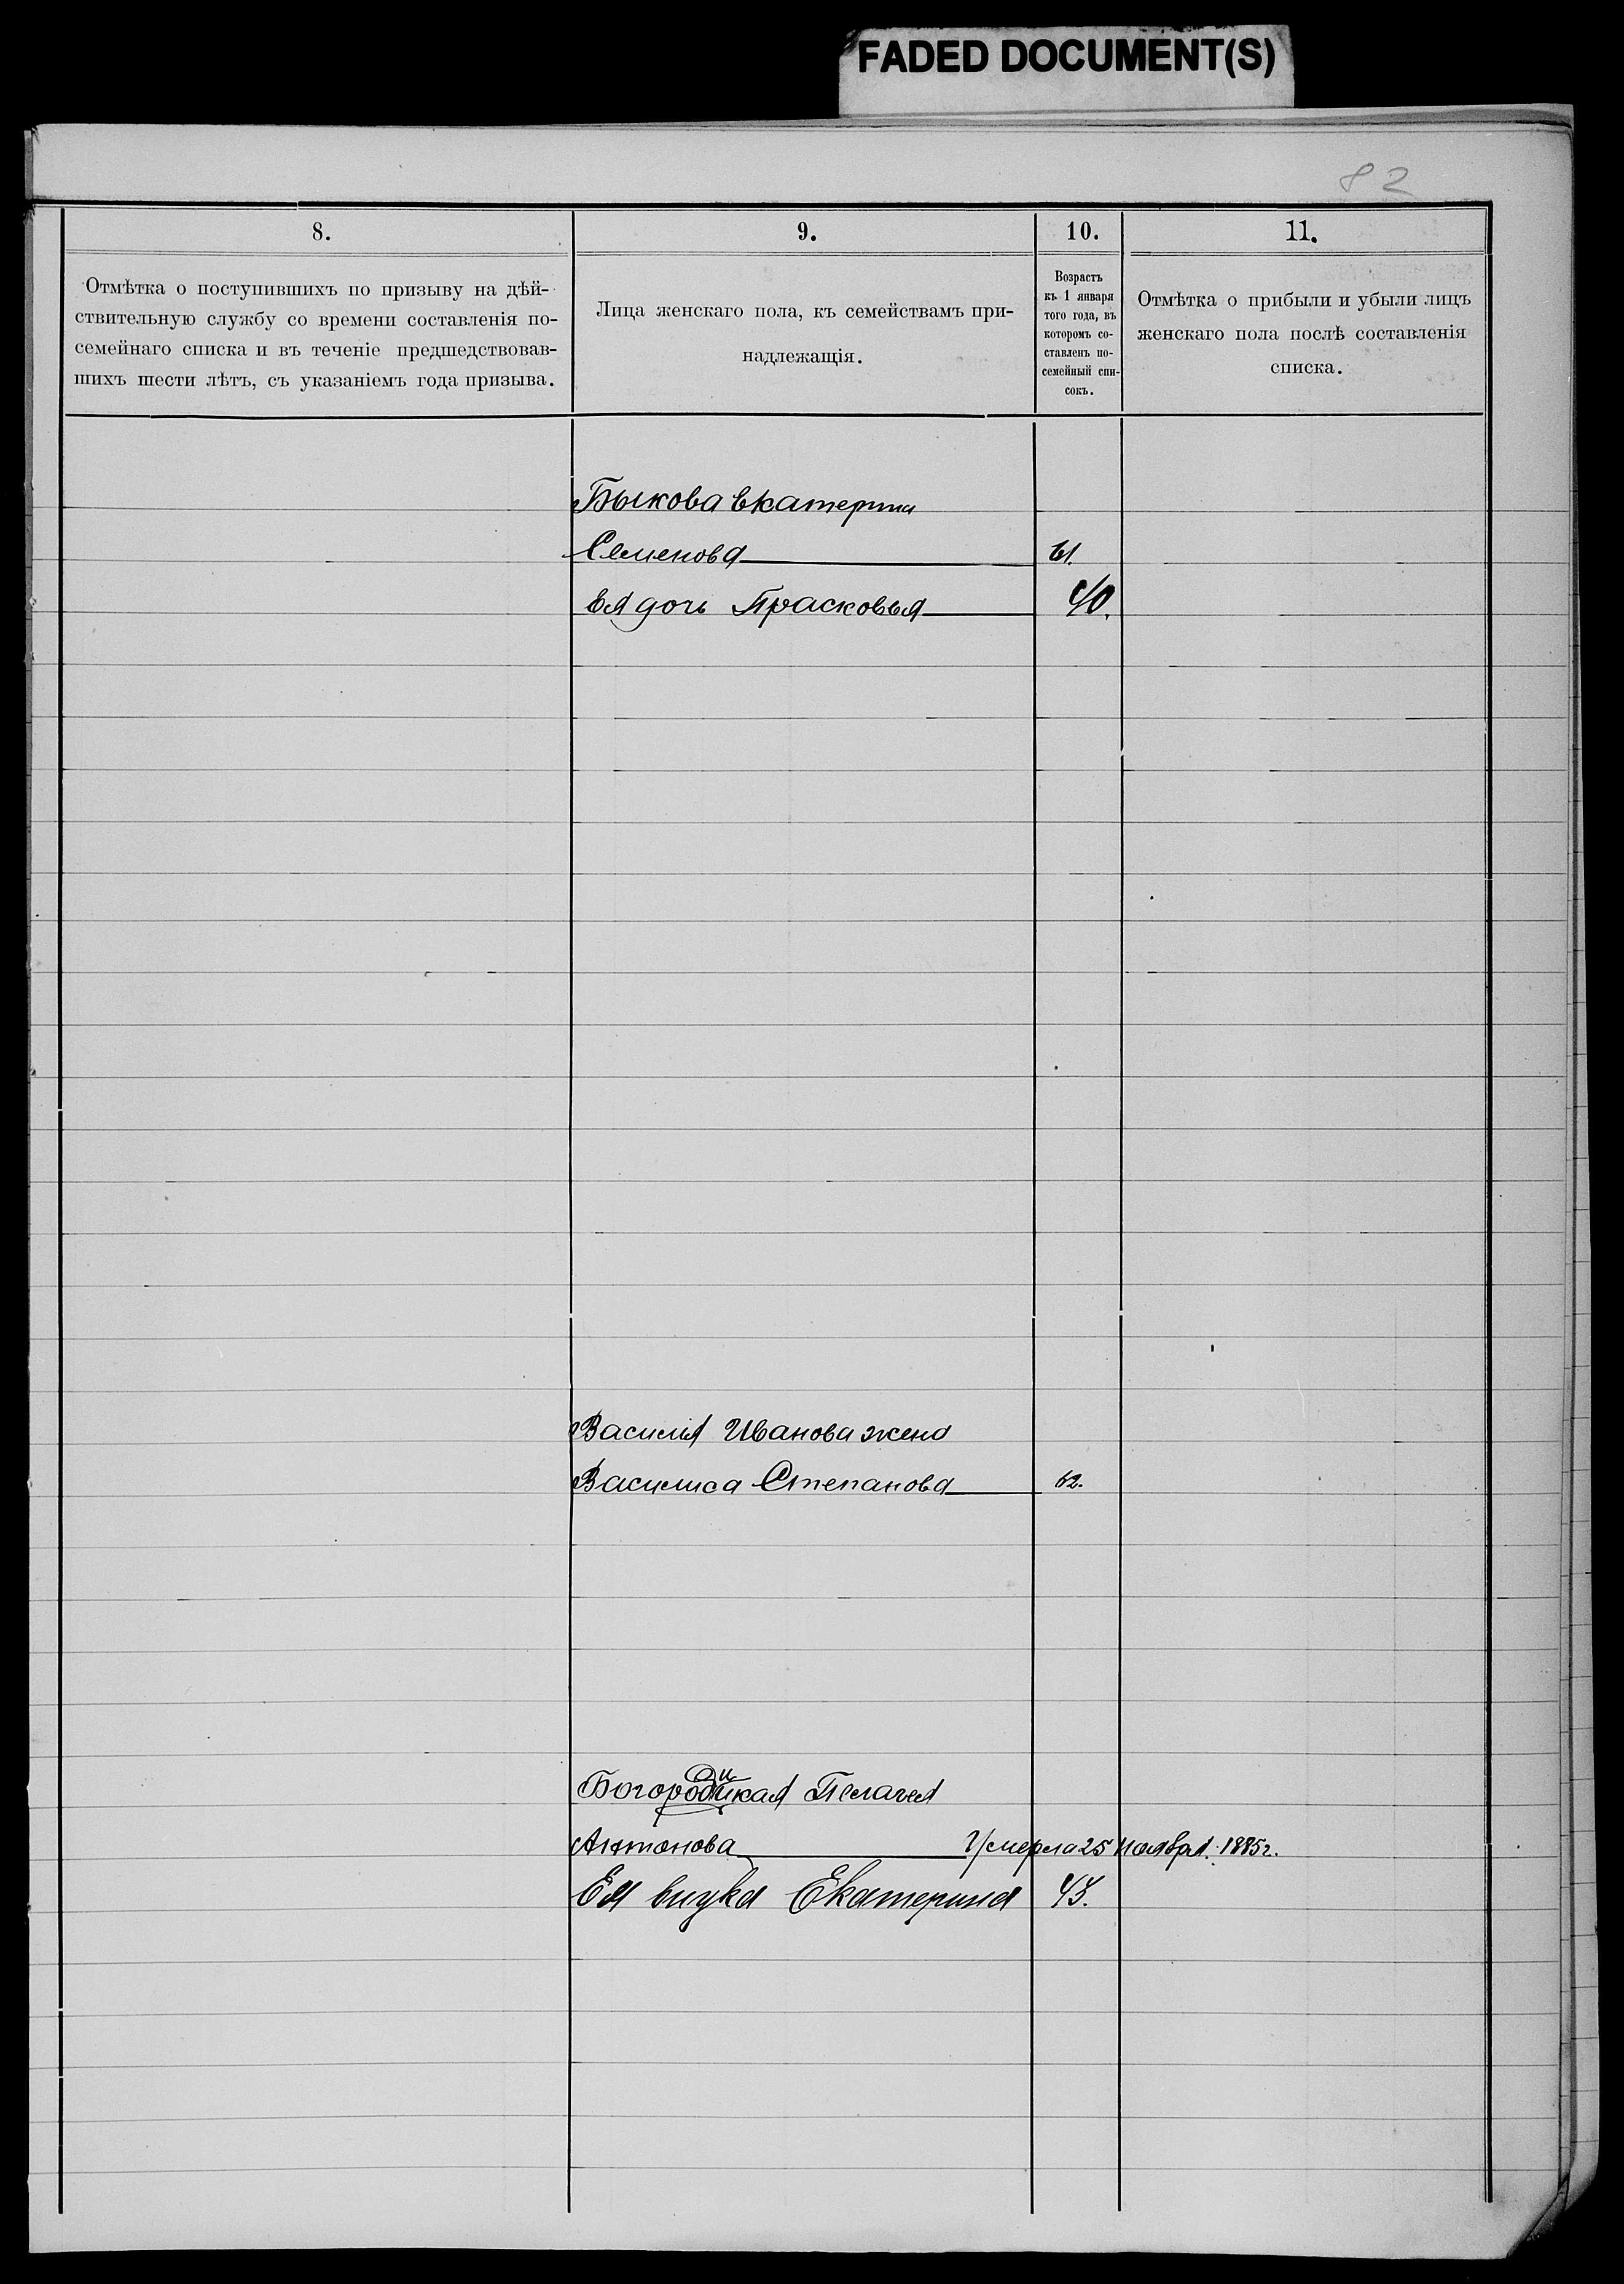 FADED DOCUMENT(S)
82
8.
Отмѣтка о поступившихъ по призыву на дѣй-
ствительную службу со времени составленія по-
семейнаго списка и въ теченіе предшедствовав-
шихъ шести лѣтъ, съ указаніемъ года призыва.
9.
Лица женскаго пола, къ семействамъ при-
надлежащія.
10.
Возрастъ
къ 1 января
того года, въ
которомъ со-
ставленъ по-
семейный спи-
сокъ.
11.
Отмѣтка о прибыли и убыли лицъ
женскаго пола послѣ составленія
списка.
Быкова Екатерина
Семенова 61.
Ея дочь Прасковья 40.
Василья Иванова жена
Василиса Степанова 62.
Богородицкая Пелагея
Антонова Умерла 25 Ноября 1885 г.
Ея внука Екатерина 43.